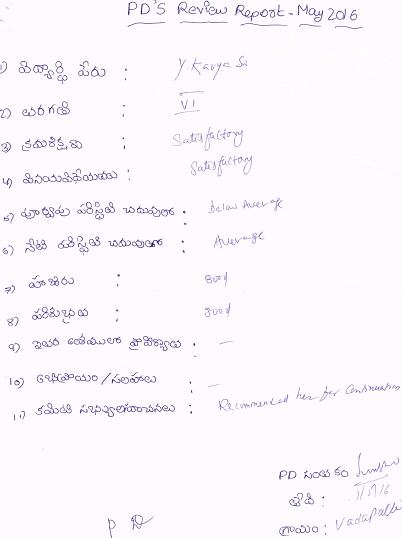 PD'S Review Report - May 2016
1) విద్యార్థి పేరు : Y. Kavya Sri
2) తరగతి : VI
3) క్రమశిక్షణ : Satisfactory
4) వినయవిధేయతలు : Satisfactory
5) పూర్వపు పరిస్థితి చదువులో : Below Average
6) నేటి పరిస్థితి చదువులో : Average
7) హాజరు : Good
8) పరిశుభ్రత : Good
9) ఇతర అంశములలో ప్రావీణ్యాలు : -
10) అభిప్రాయం / సలహాలు : -
11) కమిటి సభ్యుల సూచనలు : Recommended her for Continuation
PD సంతకం
తేది :
గ్రామం : Vadapalli
P D